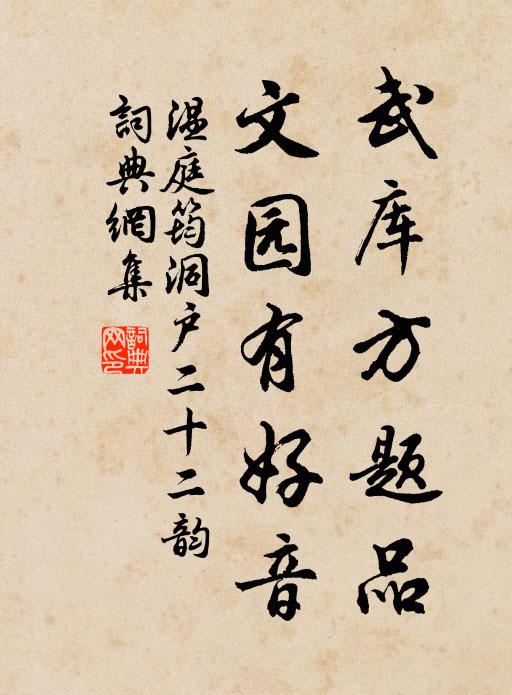 武库方题品
文园有好音
温庭筠洞户二十二韵
詞典網集
詞典網印